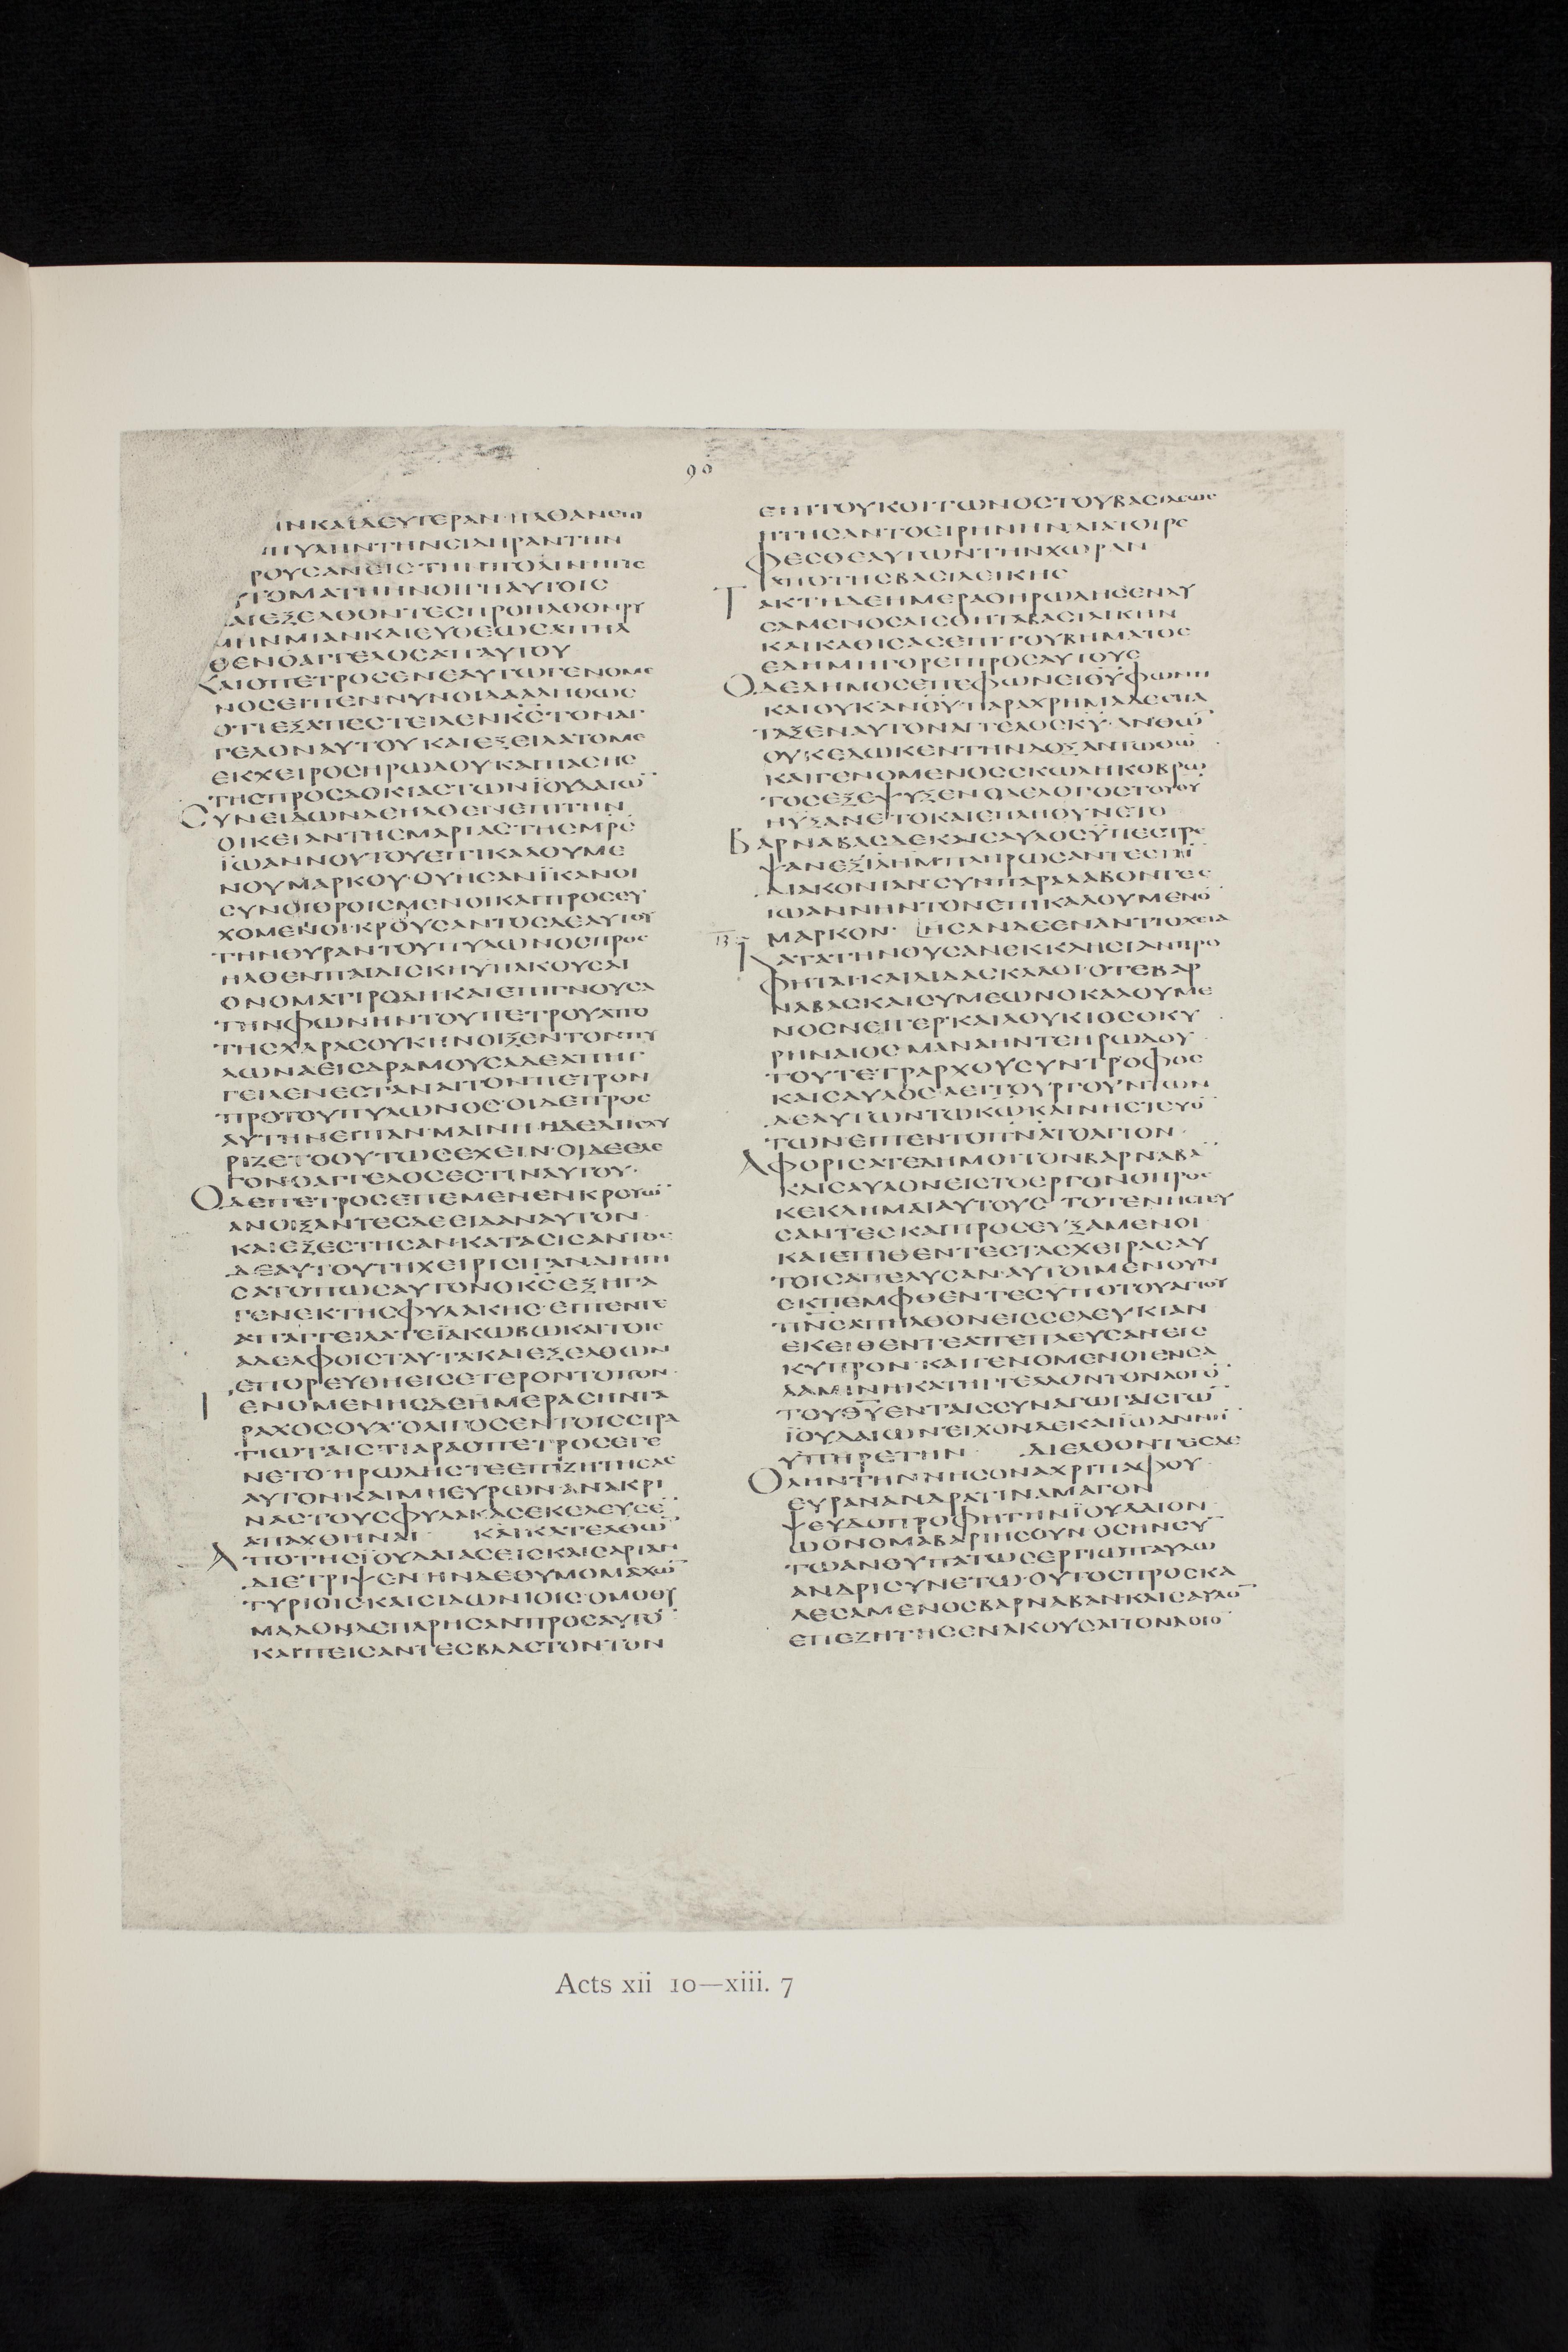 90
ΙΝΚΑΙΔΕΥΤΕΡΑΝ·ΗΛΘΑΝΕΠΙ
ΠΥΛΗΝΤΗΝϹΙΔΗΡΑΝΤΗΝ
ΡΟΥϹΑΝΕΙϹΤΗΝΠΟΛΙΝΗΤΙϹ
ΥΤΟΜΑΤΗΗΝΟΙΓΗΑΥΤΟΙϹ
ΑΙΕΞΕΛΘΟΝΤΕϹΠΡΟΗΛΘΟΝΡΥ
ΜΗΝΜΙΑΝΚΑΙΕΥΘΕΩϹΑΠΗΛ
ΘΕΝΟΑΓΓΕΛΟϹΑΠΑΥΤΟΥ
ΚΑΙΟΠΕΤΡΟϹΕΝΕΑΥΤΩΓΕΝΟΜΕ
ΝΟϹΕΙΠΕΝΝΥΝΟΙΔΑΑΛΗΘΩϹ
ΟΤΙΕΞΑΠΕϹΤΕΙΛΕΝΚ̅Ϲ̅ΤΟΝΑΓ
ΓΕΛΟΝΑΥΤΟΥΚΑΙΕΞΕΙΛΑΤΟΜΕ
ΕΚΧΕΙΡΟϹΗΡΩΔΟΥΚΑΙΠΑϹΗϹ
ΤΗϹΠΡΟϹΔΟΚΙΑϹΤΩΝΪΟΥΔΑΙΩ̅
ϹΥΝΕΙΔΩΝΔΕΗΛΘΕΝΕΠΙΤΗΝ
ΟΙΚΕΙΑΝΤΗϹΜΑΡΙΑϹΤΗϹΜ̅Ρ̅Ϲ̅
ΪΩΑΝΝΟΥΤΟΥΕΠΙΚΑΛΟΥΜΕ
ΝΟΥΜΑΡΚΟΥ·ΟΥΗϹΑΝΪΚΑΝΟΙ
ϹΥΝΗΘΡΟΙϹΜΕΝΟΙΚΑΙΠΡΟϹΕΥ
ΧΟΜΕΝΟΙ·ΚΡΟΥϹΑΝΤΟϹΔΕΑΥΤΟΥ
ΤΗΝΘΥΡΑΝΤΟΥΠΥΛΩΝΟϹΠΡΟϹ
ΗΛΘΕΝΠΑΙΔΙϹΚΗΥΠΑΚΟΥϹΑΙ
ΟΝΟΜΑΤΙΡΟΔΗ·ΚΑΙΕΠΙΓΝΟΥϹΑ
ΤΗΝΦΩΝΗΝΤΟΥΠΕΤΡΟΥΑΠΟ
ΤΗϹΧΑΡΑϹΟΥΚΗΝΟΙΞΕΝΤΟΝΠΥ
ΛΩΝΑΕΙϹΔΡΑΜΟΥϹΑΔΕΑΠΗΓ
ΓΕΙΛΕΝΕϹΤΑΝΑΙΤΟΝΠΕΤΡΟΝ
ΠΡΟΤΟΥΠΥΛΩΝΟϹ·ΟΙΔΕΠΡΟϹ
ΑΥΤΗΝΕΙΠΑΝ·ΜΑΙΝΗ·ΗΔΕΔΙΙϹΧΥ
ΡΙΖΕΤΟΟΥΤΩϹΕΧΕΙΝ·ΟΙΔΕΕΛΕ
ΓΟΝ·ΟΑΓΓΕΛΟϹΕϹΤΙΝΑΥΤΟΥ·
ΟΔΕΠΕΤΡΟϹΕΠΕΜΕΝΕΝΚΡΟΥΩ̅
ΑΝΟΙΞΑΝΤΕϹΔΕΕΙΔΑΝΑΥΤΟΝ
ΚΑΙΕΞΕϹΤΗϹΑΝ·ΚΑΤΑϹΙϹΑΝΤΟϹ
ΔΕΑΥΤΟΥΤΗΧΕΙΡΙϹΙΓΑΝΔΙΗΓΗ
ϹΑΤΟΠΩϹΑΥΤΟΝΟΚ̅Ϲ̅ΕΞΗΓΑ
ΓΕΝΕΚΤΗϹΦΥΛΑΚΗϹ·ΕΙΠΕΝΤΕ
ΑΠΑΓΓΕΙΛΑΤΕΪΑΚΩΒΩΚΑΙΤΟΙϹ
ΑΔΕΛΦΟΙϹΤΑΥΤΑΚΑΙΕΞΕΛΘΩΝ
ΕΠΟΡΕΥΘΗΕΙϹΕΤΕΡΟΝΤΟΠΟΝ·
ΓΕΝΟΜΕΝΗϹΔΕΗΜΕΡΑϹΗΝΤΑ
ΡΑΧΟϹΟΥΧΟΛΙΓΟϹΕΝΤΟΙϹϹΤΡΑ
ΤΙΩΤΑΙϹΤΙΑΡΑΟΠΕΤΡΟϹΕΓΕ
ΝΕΤΟ·ΗΡΩΔΗϹΤΕΕΠΙΖΗΤΗϹΑϹ
ΑΥΤΟΝ·ΚΑΙΜΗΕΥΡΩΝ·ΑΝΑΚΡΙ
ΝΑϹΤΟΥϹΦΥΛΑΚΑϹΕΚΕΛΕΥϹΕ̅
ΑΠΑΧΘΗΝΑΙ· ΚΑΙΚΑΤΕΛΘΩ̅
ΑΠΟΤΗϹΪΟΥΔΑΙΑϹΕΙϹΚΑΙϹΑΡΙΑΝ
ΔΙΕΤΡΙΨΕΝ·ΗΝΔΕΘΥΜΟΜΑΧΩ̅
ΤΥΡΙΟΙϹΚΑΙϹΙΔΩΝΙΟΙϹ·ΟΜΟΘΥ
ΜΑΔΟΝΔΕΠΑΡΗϹΑΝΠΡΟϹΑΥΤΟ̅
ΚΑΙΠΕΙϹΑΝΤΕϹΒΛΑϹΤΟΝΤΟΝ
ΕΠΙΤΟΥΚΟΙΤΩΝΟϹΤΟΥΒΑϹΙΛΕΩϹ
ΗΤΗϹΑΝΤΟΕΙΡΗΝΗΝ·ΔΙΑΤΟΤΡΕ
ΦΕϹΘΕΑΥΤΩΝΤΗΝΧΩΡΑΝ
ΑΠΟΤΗϹΒΑϹΙΛΕΙΚΗϹ
ΤΑΚΤΗΔΕΗΜΕΡΑΟΗΡΩΔΗϹΕΝΔΥ
ϹΑΜΕΝΟϹΑΙϹΘΗΤΑΒΑϹΙΛΙΚΗΝ
ΚΑΙΚΑΘΙϹΑϹΕΠΙΤΟΥΒΗΜΑΤΟϹ
ΕΔΗΜΗΓΟΡΕΙΠΡΟϹΑΥΤΟΥϹ
ΟΔΕΔΗΜΟϹΕΠΕΦΩΝΕΙΘ̅Υ̅ΦΩΝΗ
ΚΑΙΟΥΚΑΝΟΥ·ΠΑΡΑΧΡΗΜΑΔΕΕΠΑ
ΤΑΞΕΝΑΥΤΟΝΑΓΓΕΛΟϹΚ̅Υ̅·ΑΝΘΩ̅
ΟΥΚΕΔΩΚΕΝΤΗΝΔΟΞΑΝΤΩΘ̅Ω̅
ΚΑΙΓΕΝΟΜΕΝΟϹϹΚΩΛΗΚΟΒΡΩ
ΤΟϹΕΞΕΨΥΞΕΝΟΔΕΛΟΓΟϹΤΟΥΘ̅Υ̅
ΗΥΞΑΝΕΤΟΚΑΙΕΠΛΗΘΥΝΕΤΟ
ΒΑΡΝΑΒΑϹΔΕΚΑΙϹΑΥΛΟϹΫΠΕϹΤΡΕ
ΨΑΝΕΞΪΛΗΜΠΛΗΡΩϹΑΝΤΕϹΤΗ̅
ΔΙΑΚΟΝΙΑΝ·ϹΥΝΠΑΡΑΛΑΒΟΝΤΕϹ
ΙΩΑΝΝΗΝΤΟΝΕΠΙΚΑΛΟΥΜΕΝΟ̅
ΜΑΡΚΟΝ· ΗϹΑΝΔΕΕΝΑΝΤΙΟΧΕΙΑ
13
ΚΑΤΑΤΗΝΟΥϹΑΝΕΚΚΛΗϹΙΑΝΠΡΟ
ΦΗΤΑΙΚΑΙΔΙΔΑϹΚΑΛΟΙ·ΟΤΕΒΑΡ
ΝΑΒΑϹΚΑΙϹΥΜΕΩΝΟΚΑΛΟΥΜΕ
ΝΟϹΝΕΙΓΕΡ·ΚΑΙΛΟΥΚΙΟϹΟΚΥ
ΡΗΝΑΙΟϹ·ΜΑΝΑΗΝΤΕΗΡΩΔΟΥ
ΤΟΥΤΕΤΡΑΡΧΟΥϹΥΝΤΡΟΦΟϹ
ΚΑΙϹΑΥΛΟϹ·ΛΕΙΤΟΥΡΓΟΥΝΤΩΝ
ΔΕΑΥΤΩΝΤΩΚ̅Ω̅ΚΑΙΝΗϹΤΕΥΟ̅
ΤΩΝΕΙΠΕΝΤΟΠ̅Ν̅Α̅ΤΟΑΓΙΟΝ
ΑΦΟΡΙϹΑΤΕΔΗΜΟΙΤΟΝΒΑΡΝΑΒΑ̅
ΚΑΙϹΑΥΛΟΝΕΙϹΤΟΕΡΓΟΝΟΠΡΟϹ
ΚΕΚΛΗΜΑΙΑΥΤΟΥϹ· ΤΟΤΕΝΗϹΤΕΥ
ϹΑΝΤΕϹΚΑΙΠΡΟϹΕΥΞΑΜΕΝΟΙ
ΚΑΙΕΠΙΘΕΝΤΕϹΤΑϹΧΕΙΡΑϹΑΥ
ΤΟΙϹΑΠΕΛΥϹΑΝ·ΑΥΤΟΙΜΕΝΟΥΝ
ΕΚΠΕΜΦΘΕΝΤΕϹΥΠΟΤΟΥΑΓΙΟΥ
Π̅Ν̅Ϲ̅ΑΠΗΛΘΟΝΕΙϹϹΕΛΕΥΚΙΑΝ
ΕΚΕΙΘΕΝΤΕΑΠΕΠΛΕΥϹΑΝΕΙϹ
ΚΥΠΡΟΝ·ΚΑΙΓΕΝΟΜΕΝΟΙΕΝϹΑ
ΛΑΜΙΝΗ·ΚΑΤΗΓΓΕΛΛΟΝΤΟΝΛΟΓΟ̅
ΤΟΥΘ̅Υ̅ΕΝΤΑΙϹϹΥΝΑΓΩΓΑΙϹΤΩ̅
ΪΟΥΔΑΙΩΝ·ΕΙΧΟΝΔΕΚΑΙΪΩΑΝΝΗ̅
ΥΠΗΡΕΤΗΝ· ΔΙΕΛΘΟΝΤΕϹΔΕ
ΟΛΗΝΤΗΝΝΗϹΟΝΑΧΡΙΠΑΦΟΥ
ΕΥΡΑΝΑΝΔΡΑΤΙΝΑΜΑΓΟΝ
ΨΕΥΔΟΠΡΟΦΗΤΗΝΪΟΥΔΑΙΟΝ
ΩΟΝΟΜΑΒΑΡΙΗϹΟΥΝ·ΟϹΗΝϹΥ̅
ΤΩΑΝΘΥΠΑΤΩϹΕΡΓΙΩΠΑΥΛΩ
ΑΝΔΡΙϹΥΝΕΤΩ·ΟΥΤΟϹΠΡΟϹΚΑ
ΛΕϹΑΜΕΝΟϹΒΑΡΝΑΒΑΝ·ΚΑΙϹΑΥΛΟ̅
ΕΠΕΖΗΤΗϹΕΝΑΚΟΥϹΑΙΤΟΝΛΟΓΟ̅
Acts xii 10—xiii. 7